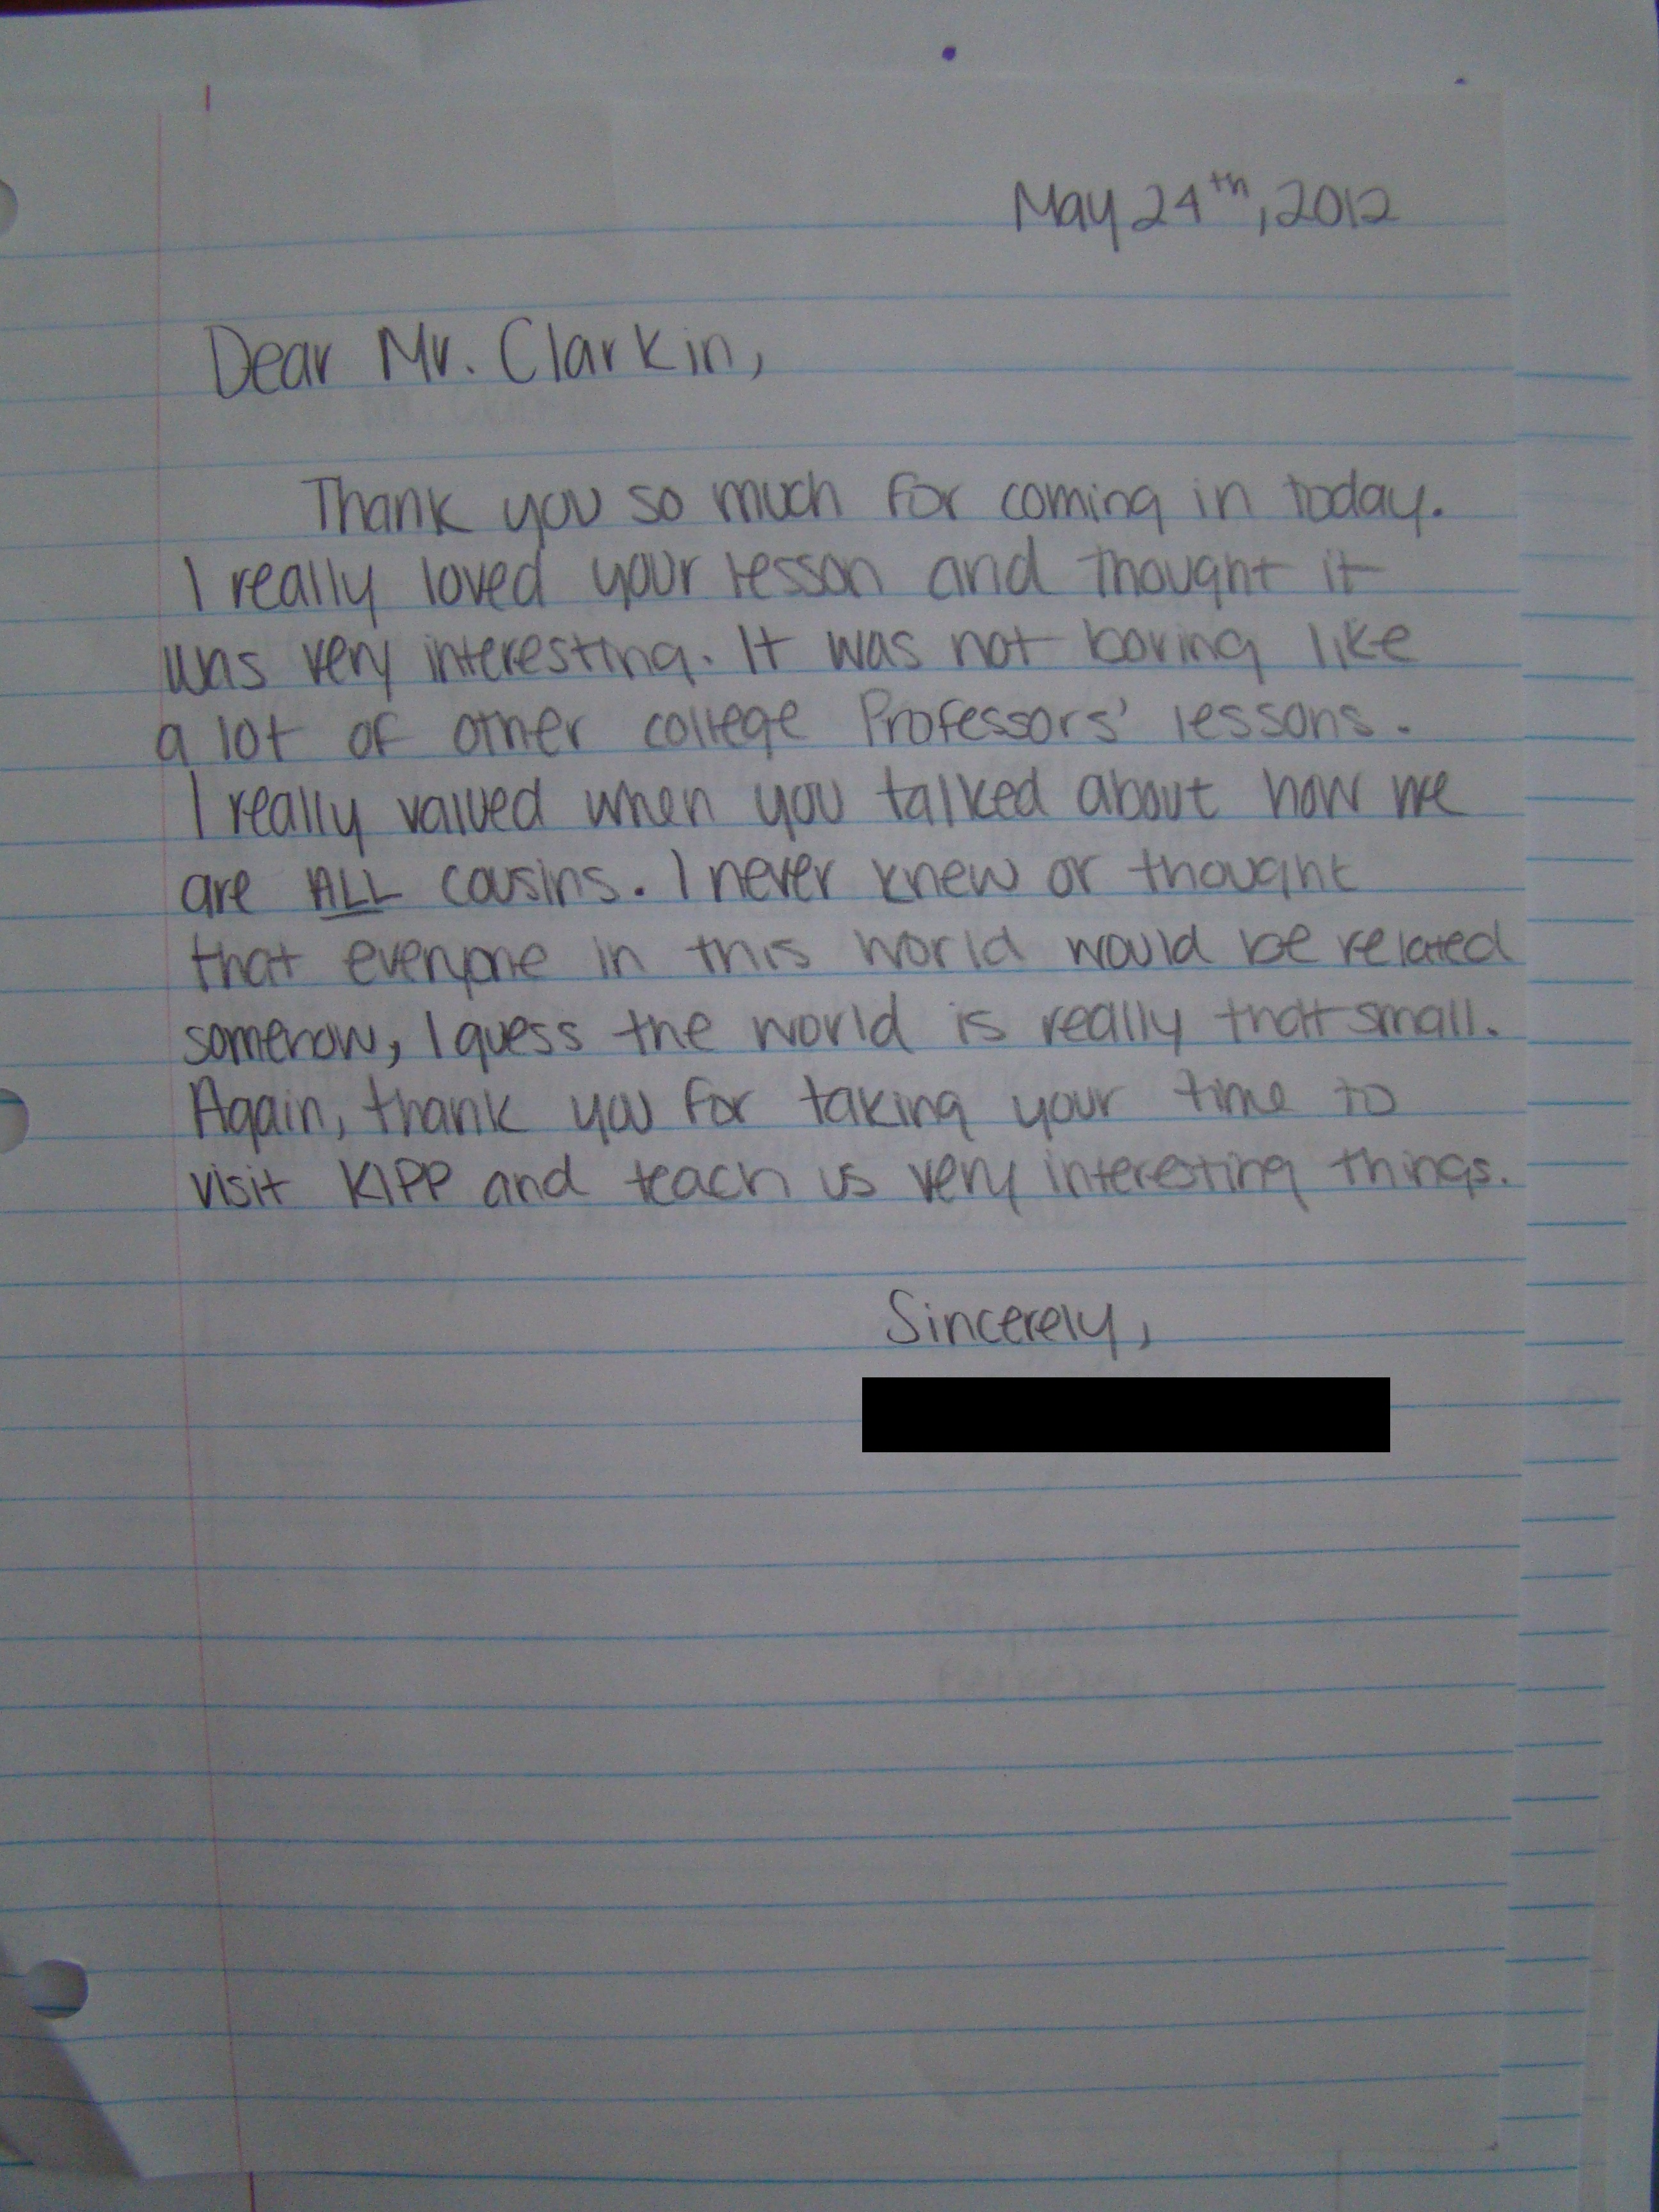 May 24th, 2012
Dear Mr. Clarkin,
Thank you so much for coming in today.
I really loved your lesson and thought it
was very interesting. It was not boring like
a lot of other college Professors' lessons.
I really valued when you talked about how we
are ALL cousins. I never knew or thought
that everyone in this world would be related
somehow, I guess the world is really that small.
Again, thank you for taking your time to
visit KIPP and teach us very interesting things.
Sincerely,